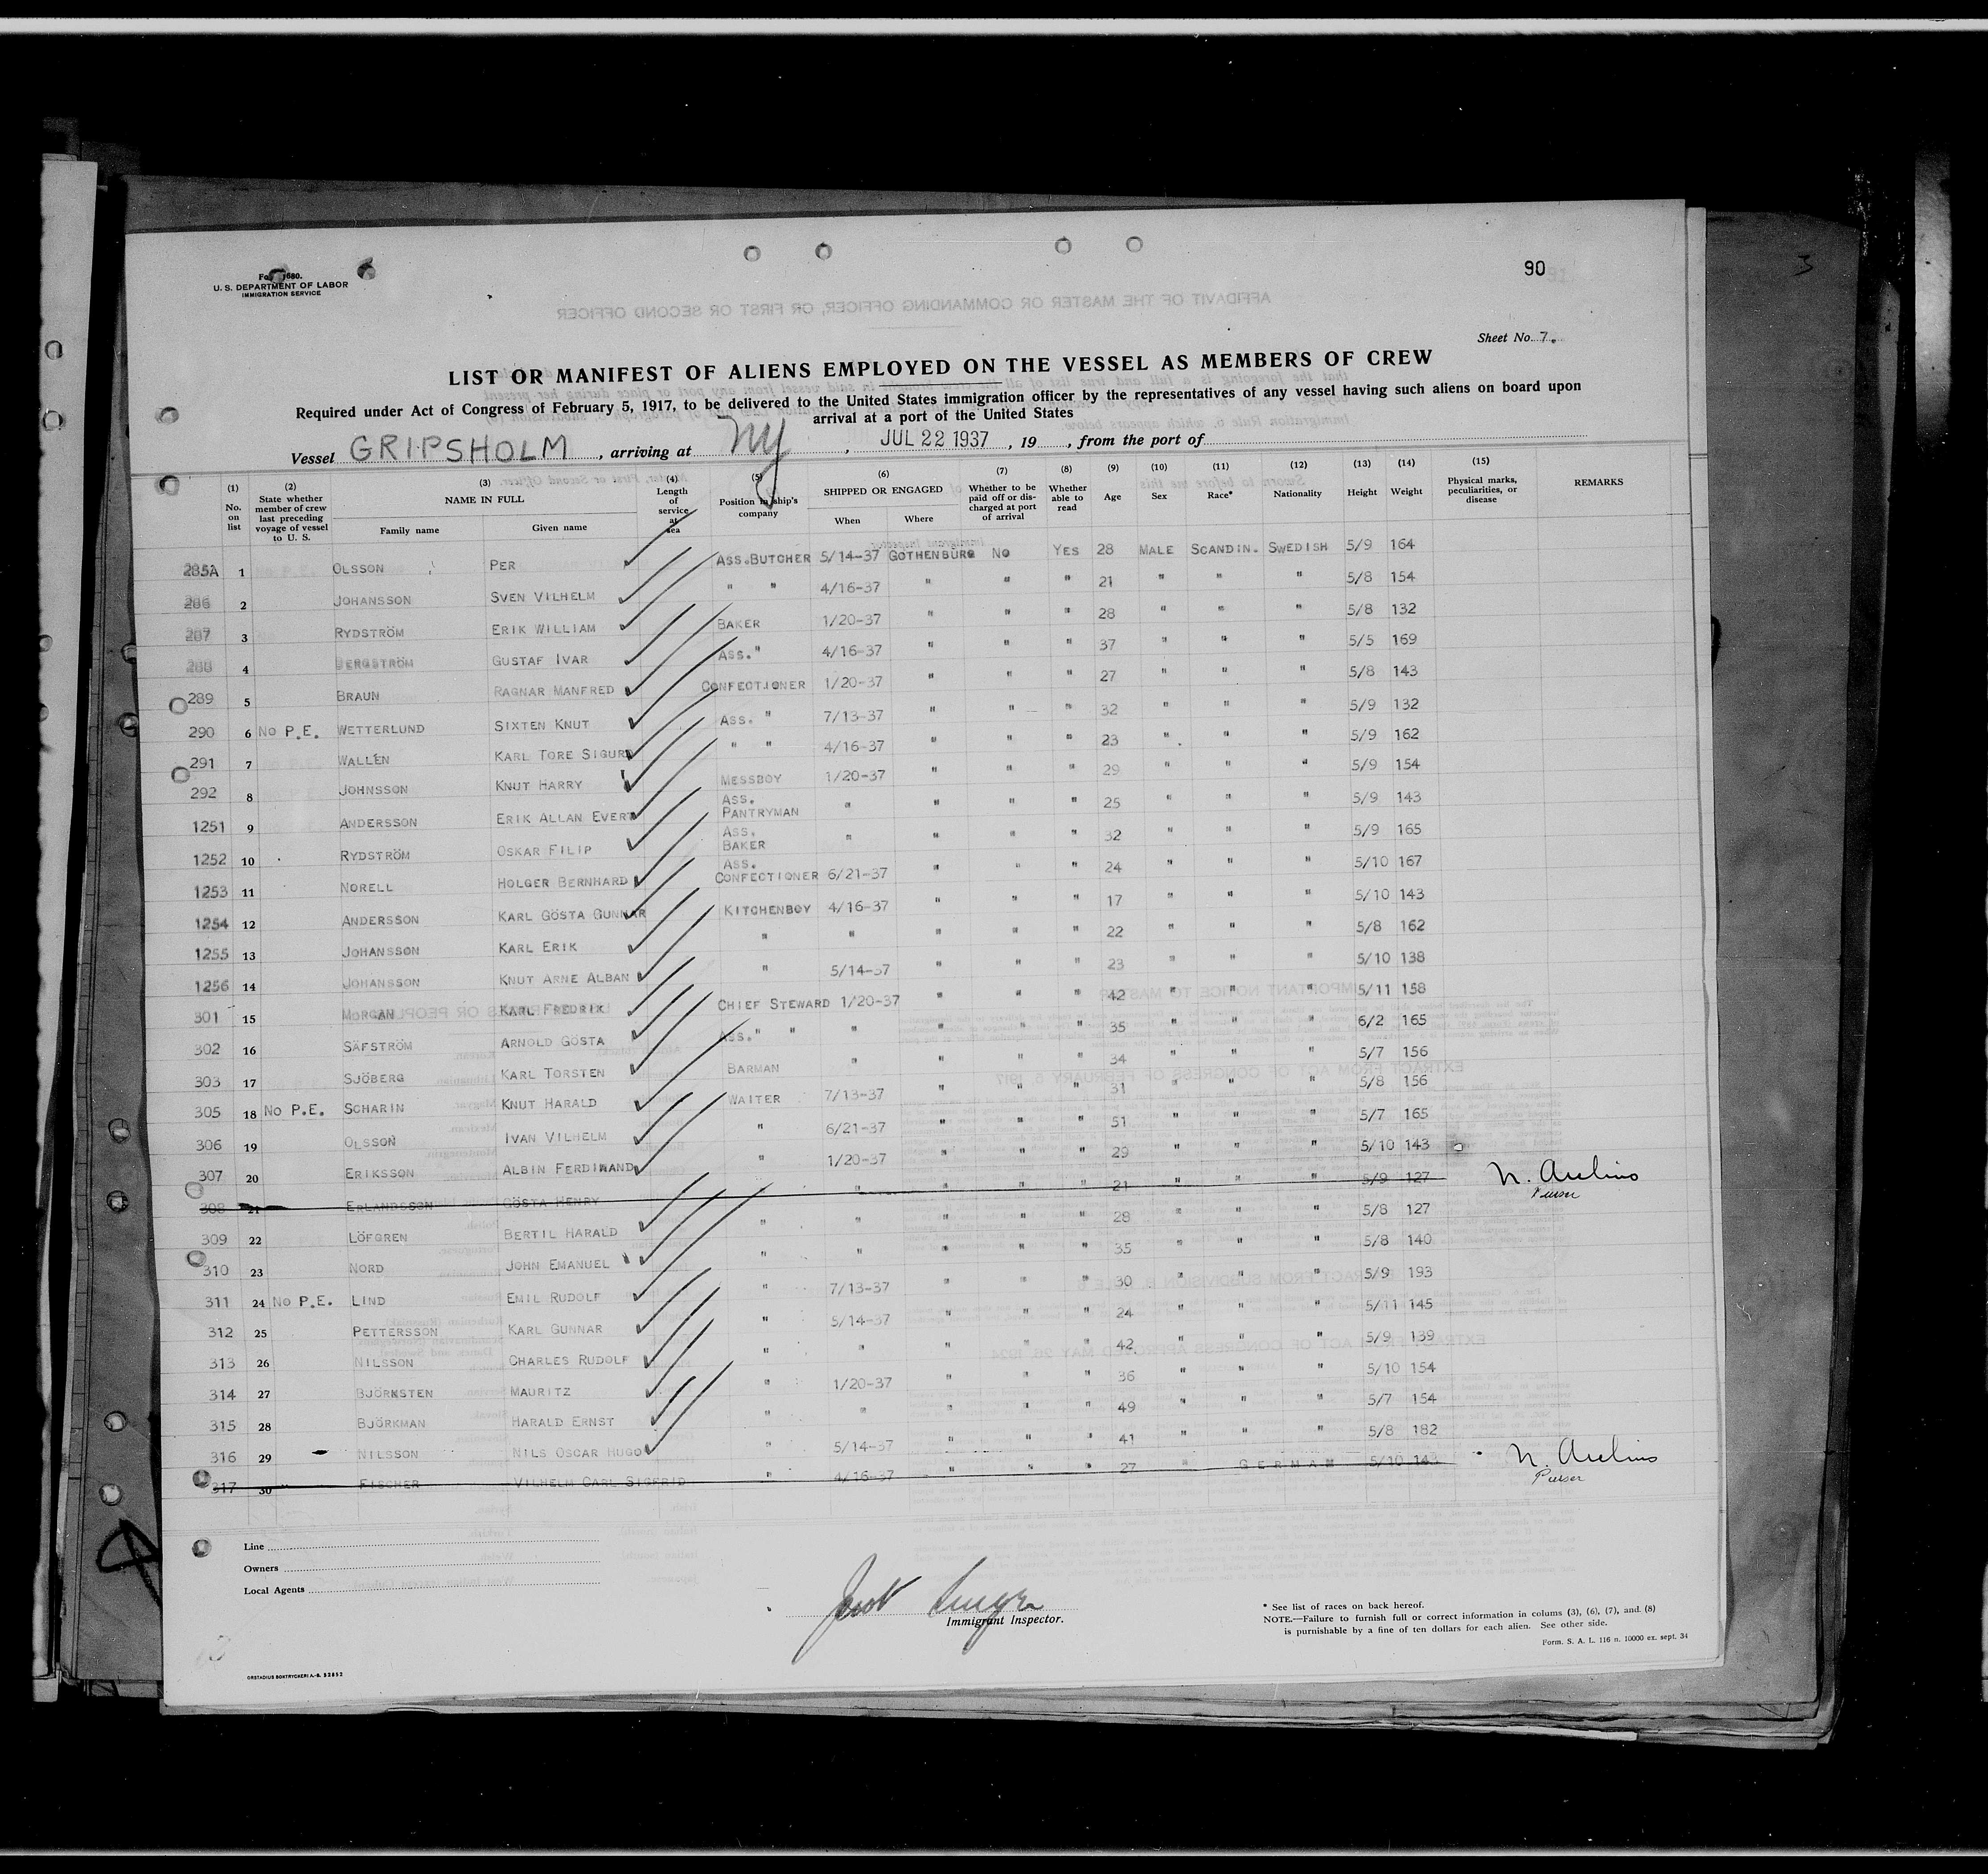 90
Form 1680.
U. S. DEPARTMENT OF LABOR
IMMIGRATION SERVICE
AFFIDAVIT OF THE MASTER OR COMMANDING OFFICER, OR FIRST OR SECOND OFFICER
Sheet No. 7.
LIST OR MANIFEST OF ALIENS EMPLOYED ON THE VESSEL AS MEMBERS OF CREW
Required under Act of Congress of February 5, 1917, to be delivered to the United States immigration officer by the representatives of any vessel having such aliens on board upon
arrival at a port of the United States
Vessel GRIPSHOLM, arriving at NY, JUL 22 1937, 19, from the port of
(1) No. on list (2) State whether member of crew last preceding voyage of vessel to U. S. (3) NAME IN FULL Family name Given name (4) Length of service at sea (5) Position in ship's company (6) SHIPPED OR ENGAGED When Where (7) Whether to be paid off or discharged at port of arrival (8) Whether able to read (9) Age (10) Sex (11) Race* (12) Nationality (13) Height (14) Weight (15) Physical marks, peculiarities, or disease REMARKS
285A 1 OLSSON PER ASS. BUTCHER 5/14-37 GOTHENBURG NO YES 28 MALE SCANDIN. SWEDISH 5/9 164
286 2 JOHANSSON SVEN VILHELM " " 4/16-37 " " " 21 " " " 5/8 154
287 3 RYDSTRÖM ERIK WILLIAM BAKER 1/20-37 " " " 28 " " " 5/8 132
288 4 BERGSTRÖM GUSTAF IVAR ASS. " 4/16-37 " " " 37 " " " 5/5 169
289 5 BRAUN RAGNAR MANFRED CONFECTIONER 1/20-37 " " " 27 " " " 5/8 143
290 6 NO P.E. WETTERLUND SIXTEN KNUT ASS. " 7/13-37 " " " 32 " " " 5/9 132
291 7 WALLÉN KARL TORE SIGURD " " 4/16-37 " " " 23 " " " 5/9 162
292 8 JOHNSSON KNUT HARRY MESSBOY 1/20-37 " " " 29 " " " 5/9 154
1251 9 ANDERSSON ERIK ALLAN EVERT ASS. PANTRYMAN " " " " 25 " " " 5/9 143
1252 10 RYDSTRÖM OSKAR FILIP ASS. BAKER " " " " 32 " " " 5/9 165
1253 11 NORELL HOLGER BERNHARD ASS. CONFECTIONER 6/21-37 " " " 24 " " " 5/10 167
1254 12 ANDERSSON KARL GÖSTA GUNNAR KITCHENBOY 4/16-37 " " " 17 " " " 5/10 143
1255 13 JOHANSSON KARL ERIK " " " " " 22 " " " 5/8 162
1256 14 JOHANSSON KNUT ARNE ALBAN " 5/14-37 " " " 23 " " " 5/10 138
301 15 MORGAN KARL FREDRIK CHIEF STEWARD 1/20-37 " " " 42 " " " 5/11 158
302 16 SÄFSTRÖM ARNOLD GÖSTA ASS. " " " " " " 35 " " " 6/2 165
303 17 SJÖBERG KARL TORSTEN BARMAN " " " " 34 " " " 5/7 156
305 18 NO P.E. SCHARIN KNUT HARALD WAITER 7/13-37 " " " 31 " " " 5/8 156
306 19 OLSSON IVAN VILHELM " 6/21-37 " " " 51 " " " 5/7 165
307 20 ERIKSSON ALBIN FERDINAND " 1/20-37 " " " 29 " " " 5/10 143
308 21 ERLANDSSON GÖSTA HENRY " " " " 21 " " " 5/9 127 Purser
309 22 LÖFGREN BERTIL HARALD " " " " " 28 " " " 5/8 127
310 23 NORD JOHN EMANUEL " " " " " 35 " " " 5/8 140
311 24 NO P.E. LIND EMIL RUDOLF " 7/13-37 " " " 30 " " " 5/9 193
312 25 PETTERSSON KARL GUNNAR " 5/14-37 " " " 24 " " " 5/11 145
313 26 NILSSON CHARLES RUDOLF " " " " " 42 " " " 5/9 139
314 27 BJÖRKSTEN MAURITZ " 1/20-37 " " " 36 " " " 5/10 154
315 28 BJÖRKMAN HARALD ERNST " " " " " 49 " " " 5/7 154
316 29 NILSSON NILS OSCAR HUGO " 5/14-37 " " " 41 " " " 5/8 182
317 30 FISCHER VILHELM CARL SIGFRID " 4/16-37 " " " 27 " GERMAN 5/10 143 Purser
Line
Owners
Local Agents
Immigrant Inspector.
* See list of races on back hereof.
NOTE.—Failure to furnish full or correct information in colums (3), (6), (7), and (8)
is punishable by a fine of ten dollars for each alien. See other side.
Form. S. A. L. 116 n. 10000 ex. sept. 34
ORSTADIUS BOKTRYCKERI A.-B. 52852